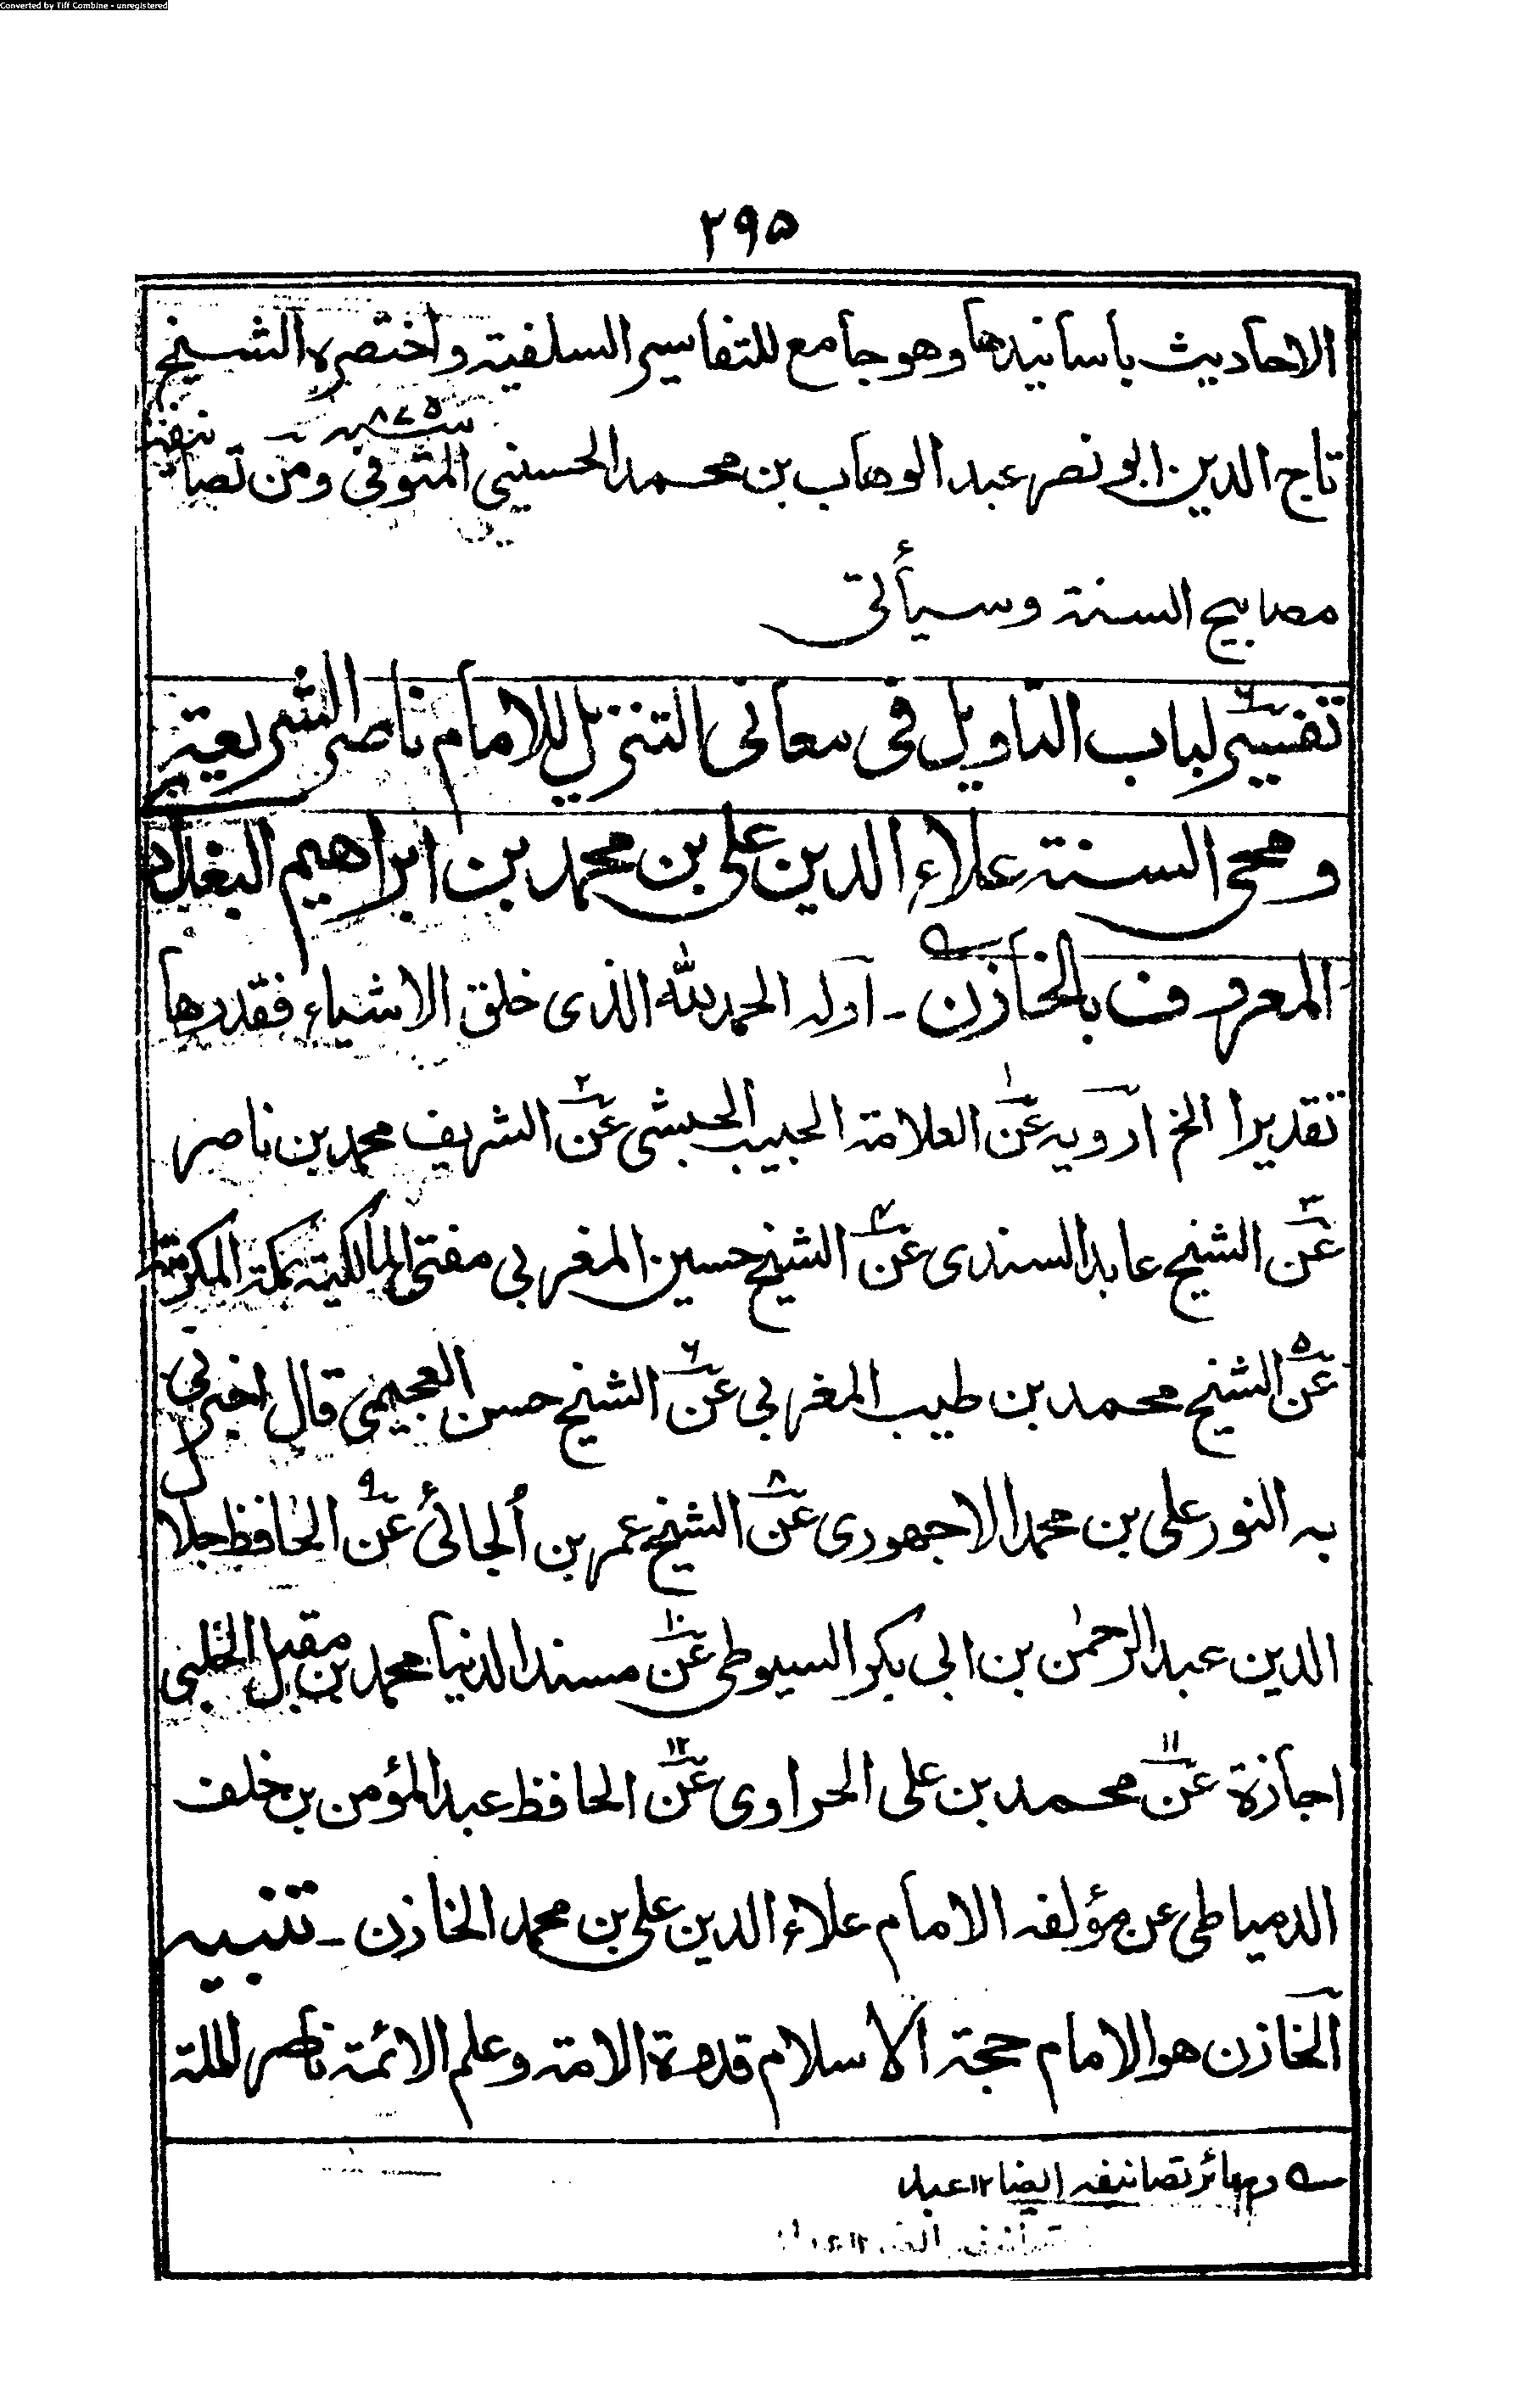 Converted by Tiff Combine - unregistered
۲۹۵
الاحاديث بأسانيدها وهو جامع للتفاسير السلفية واختصره الشيخ
تاج الدين ابو نصر عبد الوهاب بن محمد الحسيني المتوفى سنة ۸۷۵ ـ ومن تصانيفه
مصابيح السنة وسيأتى
تفسير لباب التاويل فى معانى التنزيل للامام ناصر الشريعة
ومحى السنة علاء الدين على بن محمد بن ابراهيم البغدادى
المعروف بالخازن ـ اوله الحمد لله الذى خلق الاشياء فقدرها
تقديرا الخ ارويه عن ۱ العلامة الحبيب الحبشى عن ۲ الشريف محمد بن ناصر
عن ۳ الشيخ عابد السندى عن ۴ الشيخ حسين المغربي مفتى المالكية بمكة المكرمة
عن ۵ الشيخ محمد بن طيب المغربي عن ۶ الشيخ حسن العجيمى قال اخبرنى
به النور على بن محمد الاجهورى عن ۸ الشيخ عمر بن ألجائى عن ۹ الحافظ جلال
الدين عبد الرحمٰن بن ابى بكر السيوطى عن ۱۰ مسند الدنيا محمد بن مقبل الحلبى
اجازة عن ۱۱ محمد بن على الحراوى عن ۱۲ الحافظ عبد المؤمن بن خلف
الدمياطى عن مؤلفه الامام علاء الدين على بن محمد الخازن ـ تنبيه
الخازن هو الامام حجة الاسلام قدوة الامة وعلم الائمة ناصر الملة
تصانيفه ايضا ۱۲ عبد